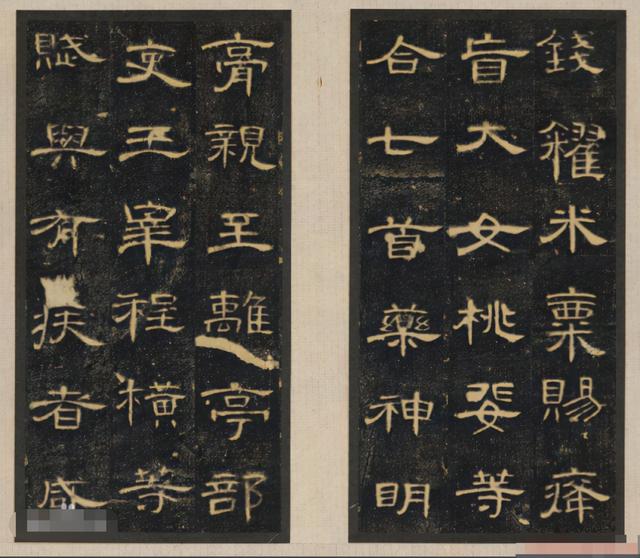 錢糴米粟賜癃
盲大女桃婓等
合七首藥神明
膏親至離亭部
吏王皋程橫等
賦與有疾者咸